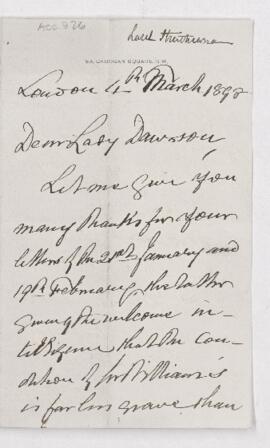 ACC 826
Lord Strathcona
53, CADOGAN SQUARE, S.W.
London 4th March 1898
Dear Lady Dawson
Let me give you
many thanks for your
letters of the 21st January and
19th February, the latter
giving the welcome in-
telligence that the con-
dition of Sir William is
is far less grave than